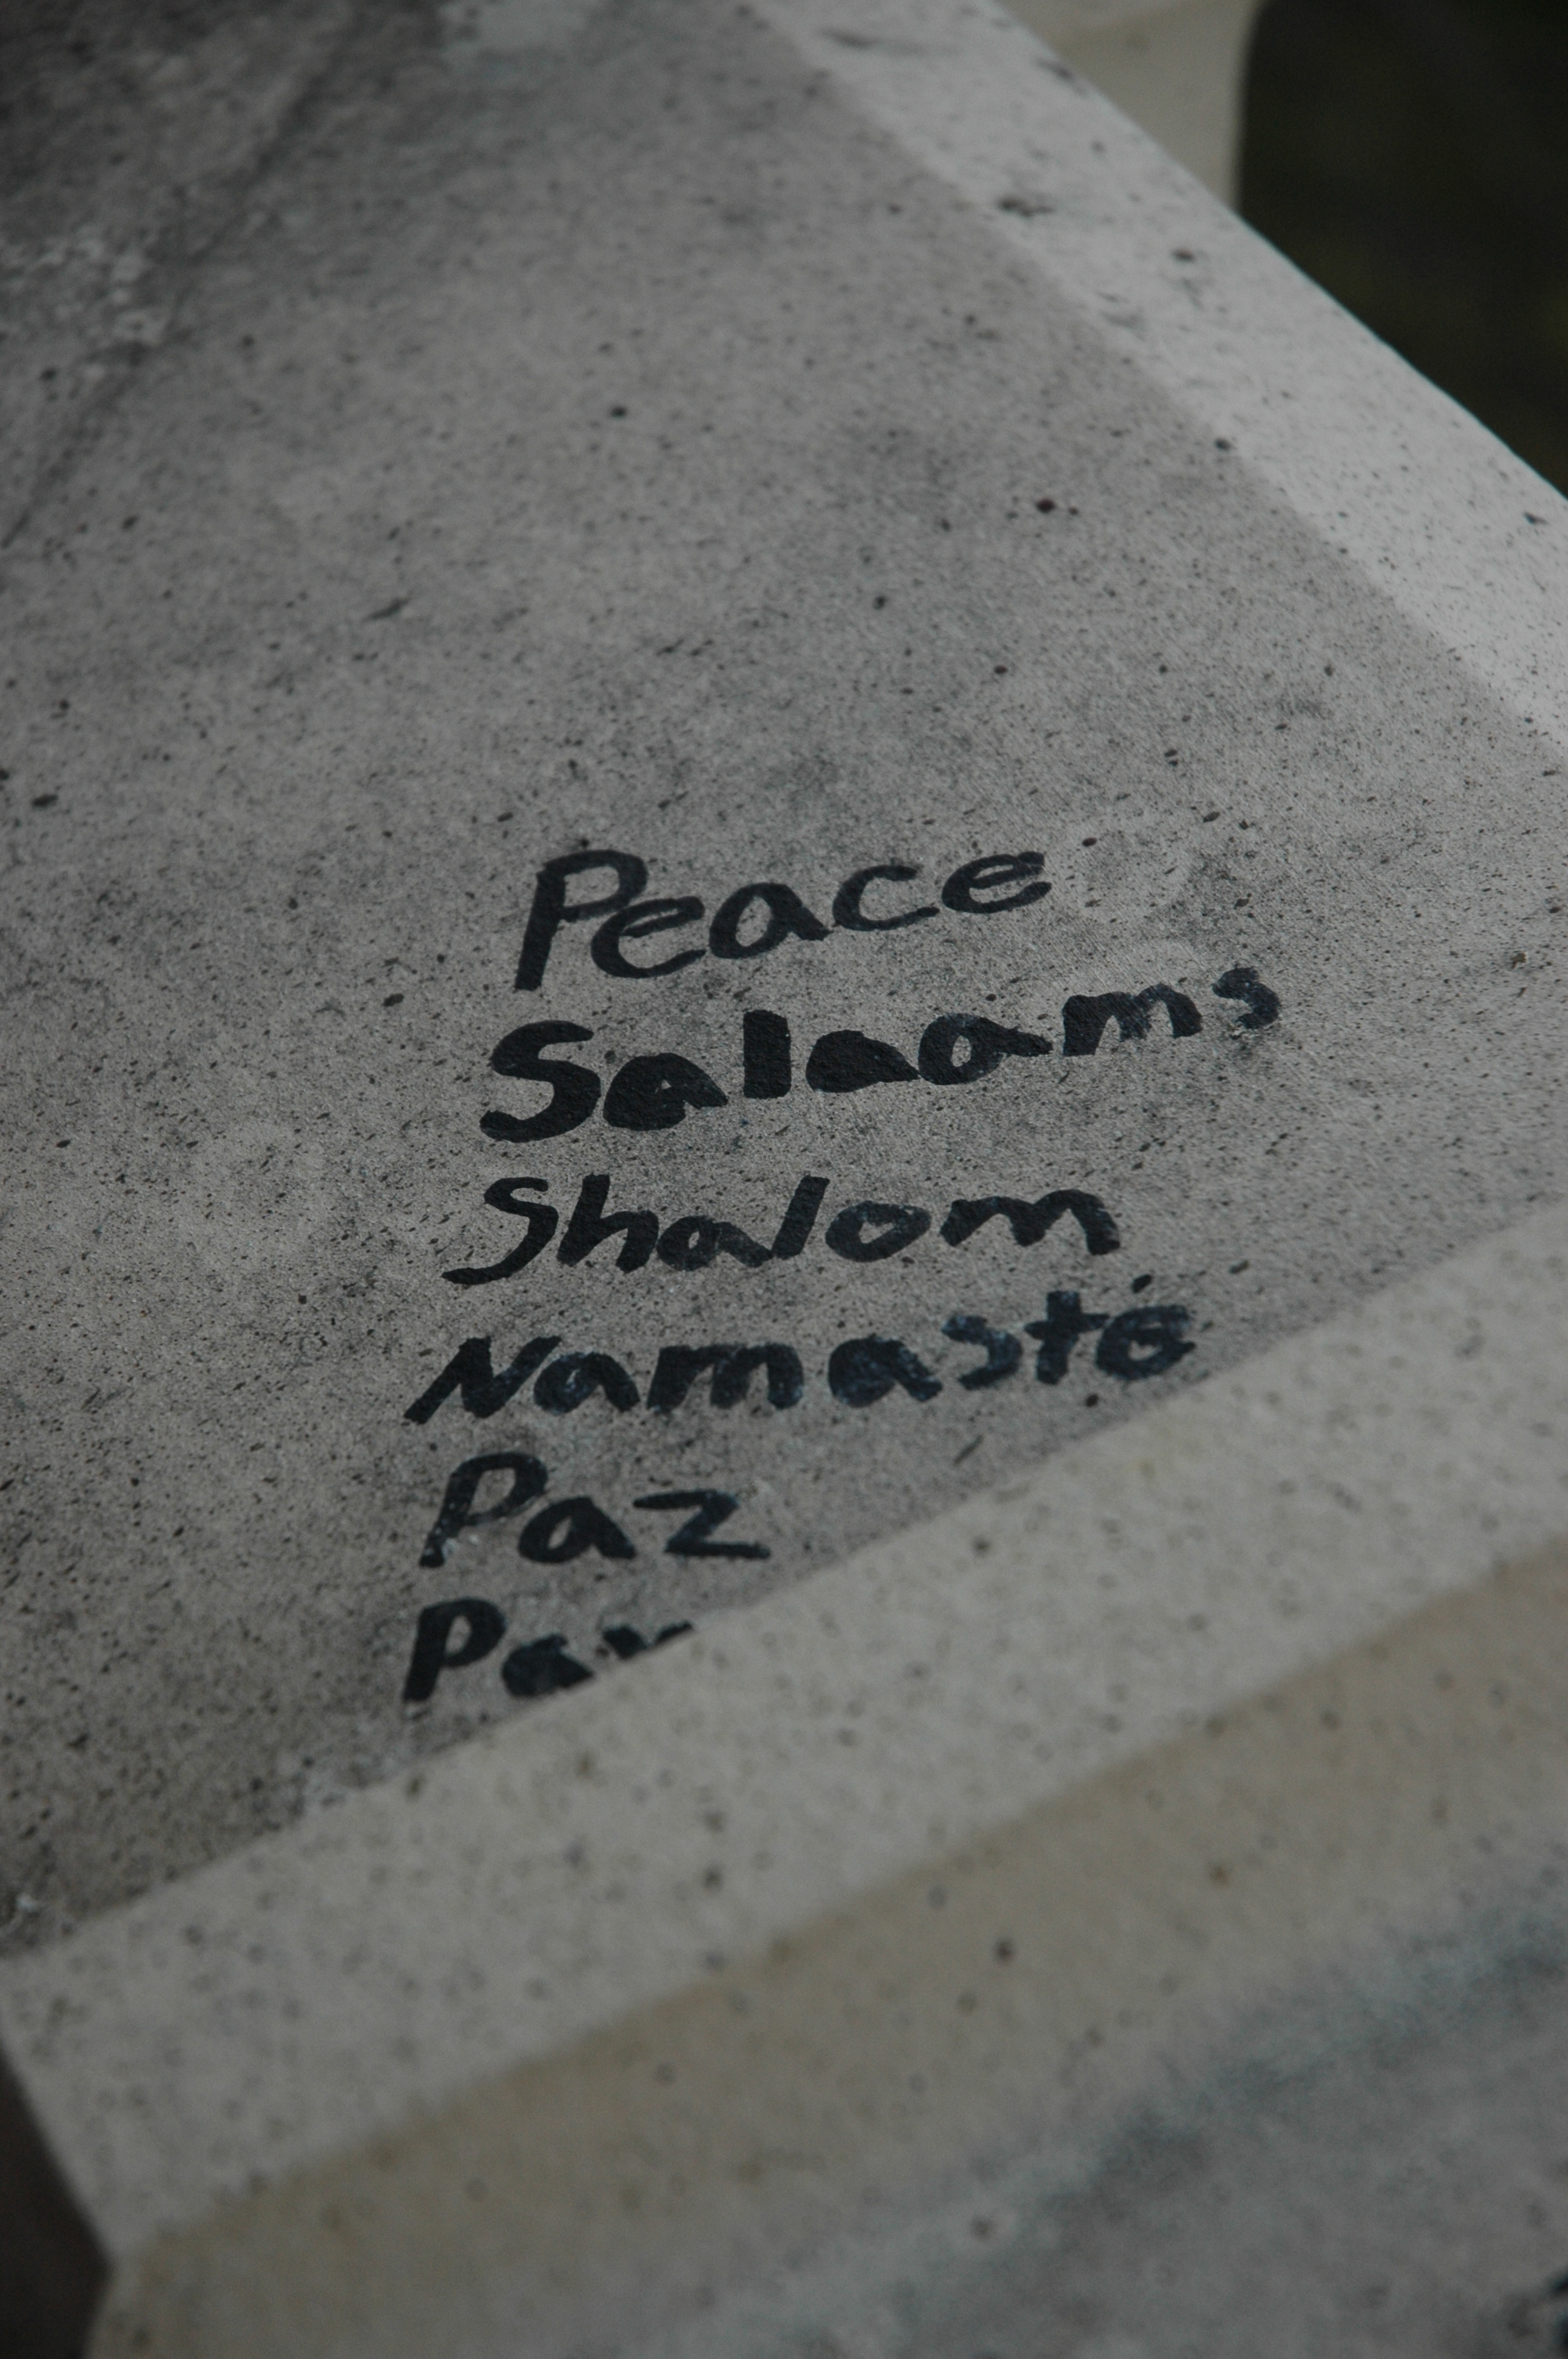 Peace
Salaams
Shalom
Namasté
Paz